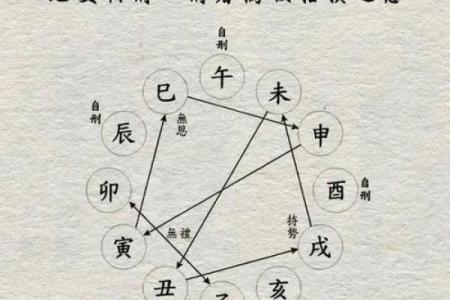 自刑
午
巳
未
自刑
無恩
辰
申
卯
酉
自刑
持勢
無禮
寅
戌
丑
亥